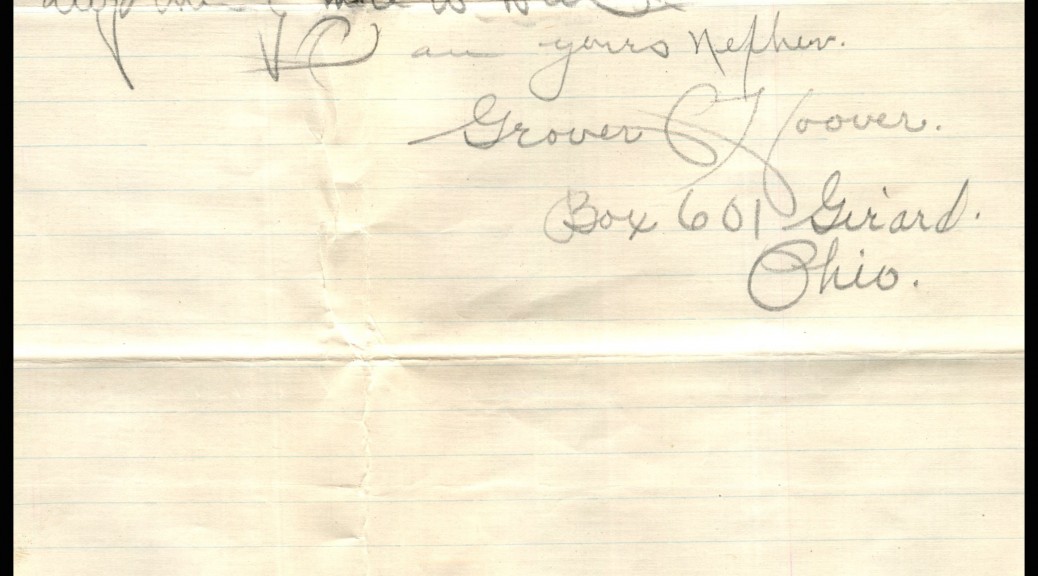 I am yours Nephew.
Grover C Hoover.
Box 601 Girard.
Ohio.